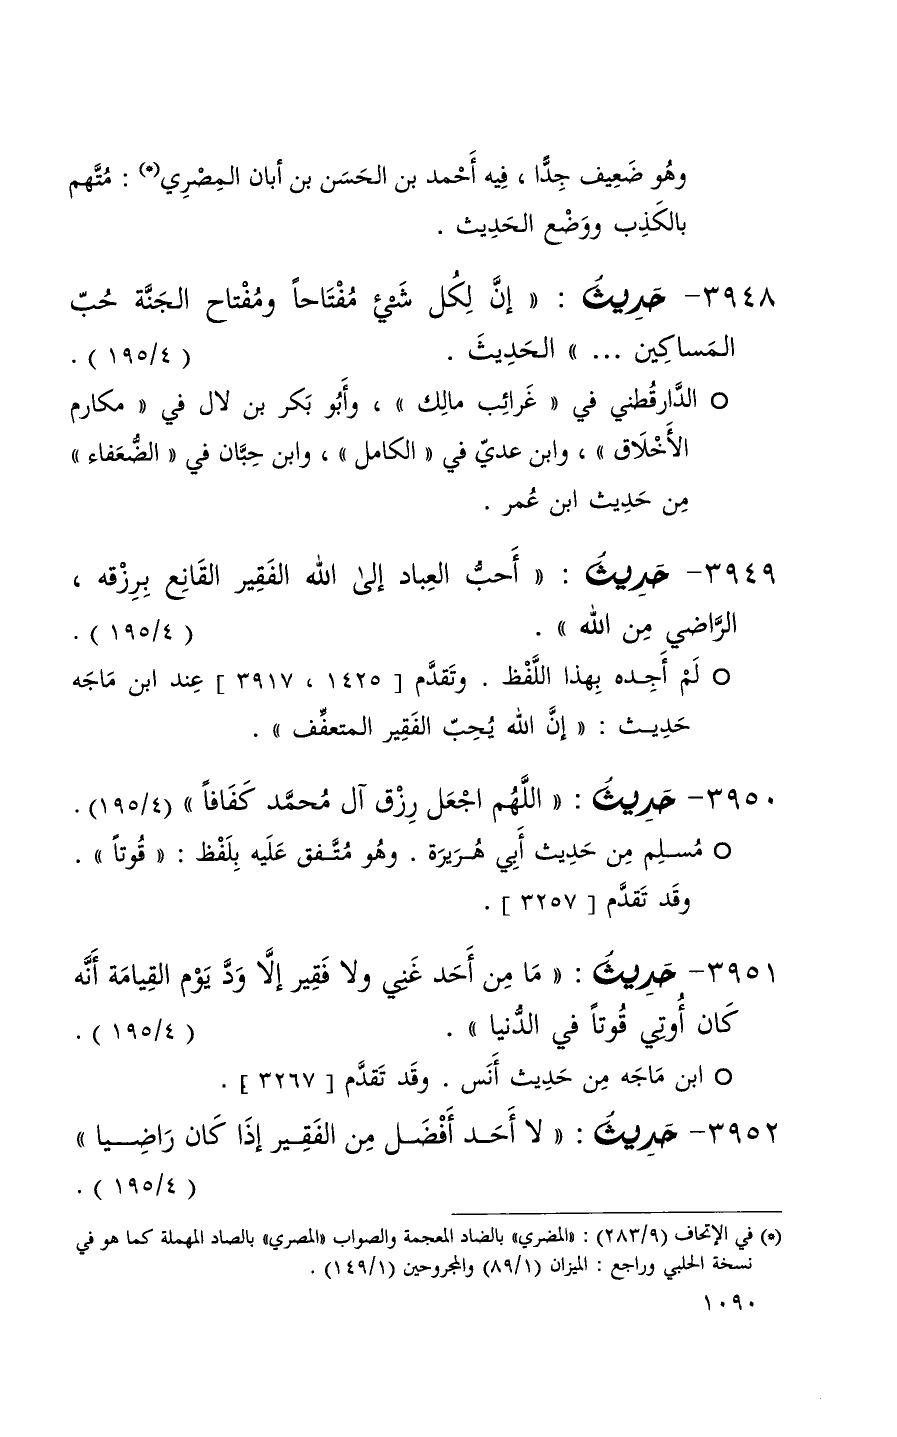 وهُو ضَعِيف جِدًّا ، فِيه أَحْمد بن الحَسَن بن أبان المِصْرِي(*) : مُتَّهم
بالكَذِب ووَضْع الحَدِيث .
٣٩٤٨- حَدِيثُ : « إنَّ لِكُل شَيْءٍ مُفْتَاحاً ومُفْتاح الجَنَّة حُبّ
المَساكِين ... » الحَدِيثَ . ( ١٩٥/٤ ) .
○ الدَّارقُطني في « غَرائِب مالِك » ، وأَبُو بَكر بن لال في « مكارم
الأَخْلاق » ، وابن عديّ في « الكامل » ، وابن حِبَّان في « الضُّعَفاء »
مِن حَدِيث ابن عُمر .
٣٩٤٩- حَدِيثُ : « أَحبُّ العِباد إلىٰ الله الفَقِير القَانِع بِرِزْقه ،
الرَّاضي مِن الله » . ( ١٩٥/٤ ) .
○ لَمْ أَجِده بِهذا اللَّفْظ . وتَقدَّم [ ١٤٢٥ ، ٣٩١٧ ] عِند ابن مَاجَه
حَدِيث : « إنَّ الله يُحِبّ الفَقِير المتعفِّف » .
٣٩٥٠- حَدِيثُ : « اللَّهُم اجْعَل رِزْق آل مُحمَّد كَفَافاً » (١٩٥/٤) .
○ مُسلِم مِن حَدِيث أَبِي هُرَيرَة . وهُو مُتَّفق عَلَيه بِلَفْظ : « قُوتاً » .
وقَد تَقدَّم [ ٣٢٥٧ ] .
٣٩٥١- حَدِيثُ : « مَا مِن أَحَد غَنِي ولا فَقِير إلَّا وَدَّ يَوْم القِيامَة أَنَّه
كَان أُوتِي قُوتاً في الدُّنيا » . ( ١٩٥/٤ ) .
○ ابن مَاجَه مِن حَدِيث أَنَس . وقَد تَقدَّم [ ٣٢٦٧ ] .
٣٩٥٢- حَدِيثُ : « لا أَحَد أَفْضَل مِن الفَقِير إذَا كَان رَاضِيا »
( ١٩٥/٤ ) .
(*) في الإتحاف (٢٨٣/٩) : «المضري» بالضاد المعجمة والصواب «المصري» بالصاد المهملة كما هو في
نسخة الحلبي وراجع : الميزان (٨٩/١) والمجروحين (١٤٩/١) .
١٠٩٠